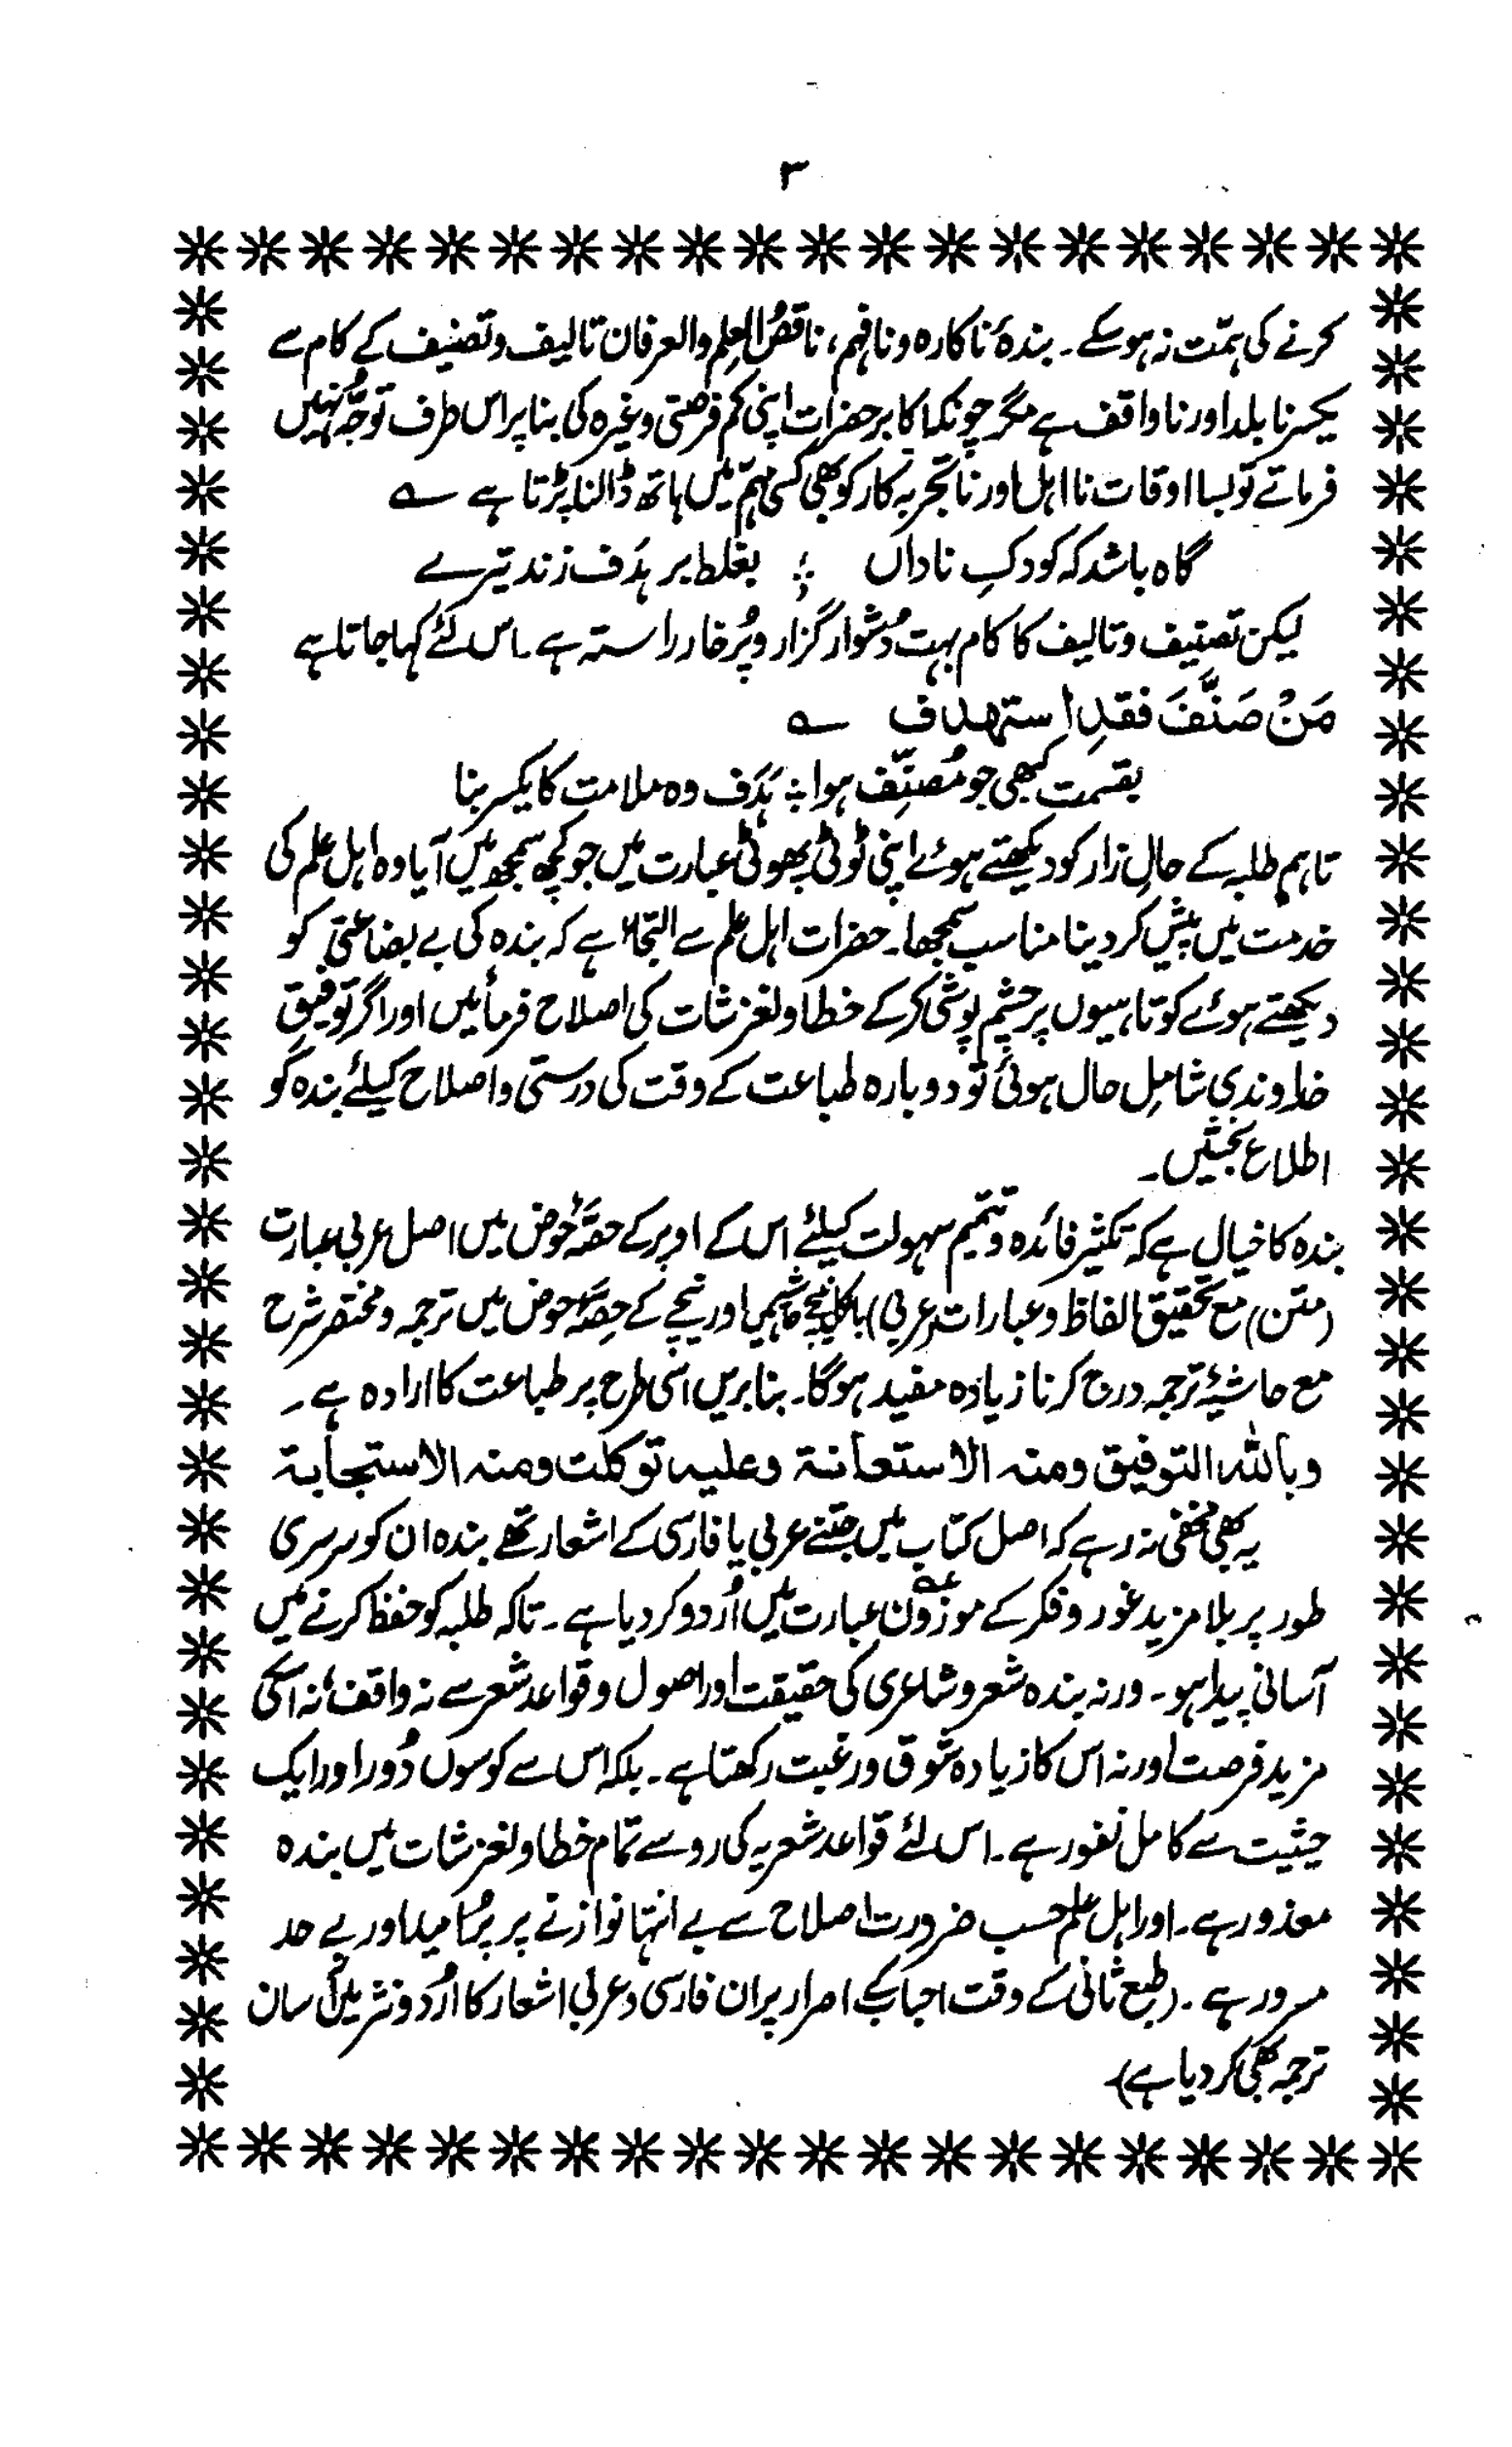 ۳
کرنے کی ہمّت نہ ہوسکے۔ بندۂ ناکارہ و نافہم، ناقصُ العِلم والعرفان تالیف و تصنیف کے کام سے
یکسر نابلد اور ناواقف ہے مگر چونکہ اکابر حضرات اپنی کم فرصتی وغیرہ کی بنا پر اس طرف توجّہ نہیں
فرماتے تو بسا اوقات نااہل اور ناتجربہ کار کو بھی کسی مہم میں ہاتھ ڈالنا پڑتا ہے ؎
گاہ باشد کہ کودکِ ناداں ؛ بغلط بر ہدَف زند تیرے
لیکن تصنیف و تالیف کا کام بہت دُشوار گزار و پُرخار راستہ ہے۔ اس لئے کہا جاتا ہے
مَنْ صَنَّفَ فقدِ استهدف ؎
بقسمت کبھی جو مُصنِّف ہوا ؛ ہدَف وہ ملامت کا یکسر بنا
تاہم طلبہ کے حالِ زار کو دیکھتے ہوئے اپنی ٹوٹی پھوٹی عبارت میں جو کچھ سمجھ میں آیا وہ اہل علم کی
خدمت میں پیش کر دینا مناسب سمجھا۔ حضرات اہل علم سے التجاء ہے کہ بندہ کی بے بضاعتی کو
دیکھتے ہوئے کوتاہیوں پر چشم پوشی کر کے خطا و لغزشات کی اصلاح فرمائیں اور اگر توفیقِ
خداوندی شاملِ حال ہوئی تو دوبارہ طباعت کے وقت کی درستی و اصلاح کیلئے بندہ کو
اطلاع بخشیں۔
بندہ کا خیال ہے کہ تکثیر فائدہ و تتمیم سہولت کیلئے اس کے اوپر کے حصّۂ حوض میں اصل عربی عبارت
(متن) مع تحقیق الفاظ و عبارات (عربی) بالکل نیچے حاشیہ میں اور نیچے کے حصّۂ حوض میں ترجمہ و مختصر شرح
مع حاشیۂ ترجمہ درج کرنا زیادہ مفید ہوگا۔ بنا بریں اسی طرح پر طباعت کا ارادہ ہے۔
وباللہ التوفیق ومنہ الاستعانة وعلیہ توکلت ومنہ الاستجابة
یہ بھی مخفی نہ رہے کہ اصل کتاب میں جتنے عربی یا فارسی کے اشعار تھے بندہ ان کو سرسری
طور پر بلا مزید غور و فکر کے موزون عبارت میں اُردو کر دیا ہے۔ تاکہ طلبہ کو حفظ کرنے میں
آسانی پیدا ہو۔ ورنہ بندہ شعر و شاعری کی حقیقت اور اصول و قواعد شعر سے نہ واقف، نہ اسکی
مزید فرصت اور نہ اس کا زیادہ شوق و رغبت رکھتا ہے۔ بلکہ اس سے کوسوں دُور اور ایک
حیثیت سے کامل نفور ہے۔ اس لئے قواعد شعریہ کی رو سے تمام خطا و لغزشات میں بندہ
معذور ہے۔ اور اہل علم حسب ضرورت اصلاح سے بے انتہا نوازنے پر پُرامید اور بے حد
مسرور ہے۔ (طبع ثانی کے وقت احباب کے اصرار پر ان فارسی و عربی اشعار کا اُردو نثر میں آسان
ترجمہ بھی کر دیا ہے)